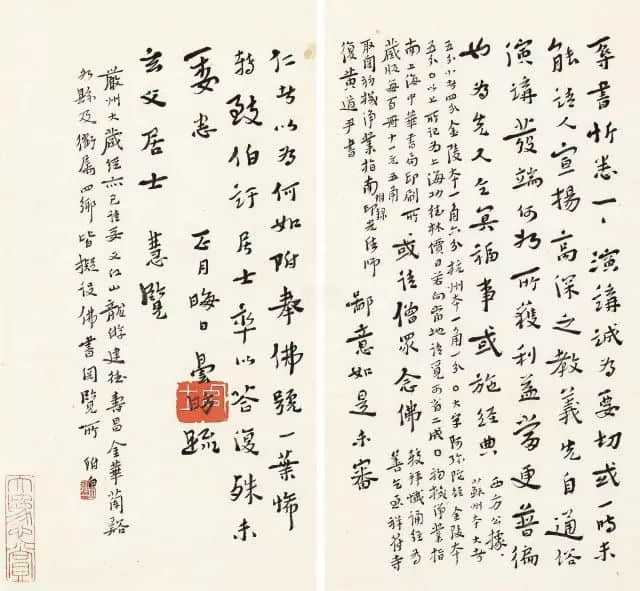 辱書忻悉一一演講誠為要切或一時未
能請人宣揚高深之教義先自通俗
演講發端何如所獲利益當更普徧
也為先人之冥福事或施經典
西方公據、蘇州本大者
五分小者四分金陵本一角六分杭州本一角一分〇大字阿弥陀經金陵本
五分〇以上所記為上海功德林價目若向當地請覓可省二成〇初機淨業指
南上海中華書局印刷所
藏版每百冊十一元五角
或請僧眾念佛
拜懺誦經為
善乞 祥符寺
取閱初機淨業指南附錄印光法師
復黃道尹書
鄙意如是未審
仁者以為何如附奉佛號一葉怖
轉致伯訏居士率以答復殊未
一一委悉 正月晦日曇昉疏
玄父居士 慧覽
嚴州大藏經亦已請妥又江山龍游建德壽昌金華蘭谿
各縣及衢屬四鄉皆擬設佛書閱覽所 附白